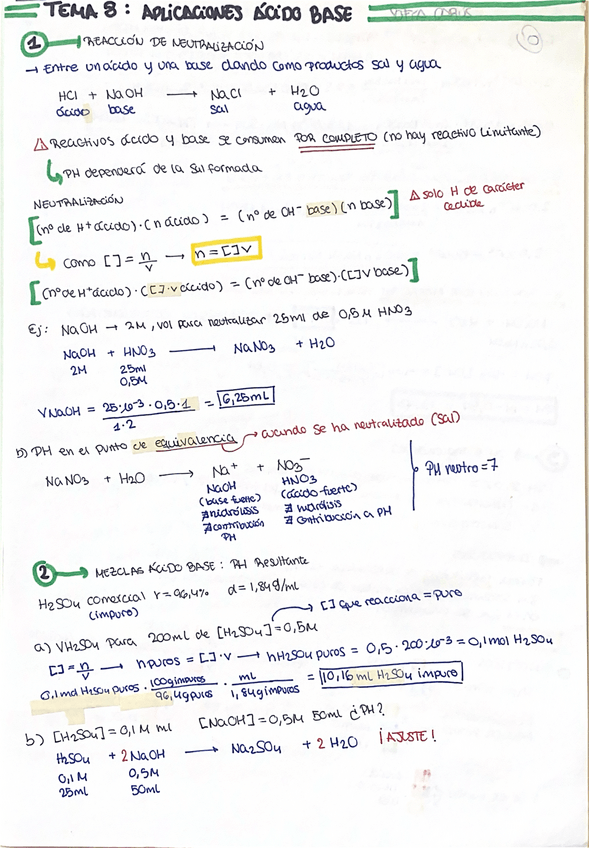 TEMA 8: APLICACIONES ÁCIDO BASE
1 REACCIÓN DE NEUTRALIZACIÓN
→ Entre un ácido y una base dando como productos sal y agua
HCl + NaOH → NaCl + H₂O
ácido base sal agua
⚠ Reactivos ácido y base se consumen POR COMPLETO (no hay reactivo limitante)
PH dependerá de la sal formada
NEUTRALIZACIÓN
[(nº de H⁺ ácido)·(n ácido) = (nº de OH⁻ base)(n base)] ⚠ solo H de carácter
cedible
como [] = n/v → n = []v
[(nº de H⁺ ácido)·([]·v ácido) = (nº de OH⁻ base)·([]v base)]
Ej: NaOH → 2M, vol para neutralizar 25ml de 0,5M HNO₃
NaOH + HNO₃ → NaNO₃ + H₂O
2M 25ml
0,5M
VNaOH = 25·10⁻³·0,5·1 / 1·2 = 6,25mL
b) PH en el punto de equivalencia → cuando se ha neutralizado (sal)
NaNO₃ + H₂O → Na⁺ + NO₃⁻
NaOH HNO₃
(base fuerte) (ácido fuerte)
∄ hidrólisis ∄ hidrólisis
∄ contribución ∄ contribución a PH
PH
PH neutro = 7
2 MEZCLAS ÁCIDO BASE: PH Resultante
H₂SO₄ comercial r = 96,4% d = 1,84g/ml
(impuro)
[] que reacciona = puro
a) VH₂SO₄ para 200ml de [H₂SO₄] = 0,5M
[] = n/v → n puros = []·v → nH₂SO₄ puros = 0,5·200·10⁻³ = 0,1mol H₂SO₄
0,1mol H₂SO₄ puros · 100g impuros / 96,4g puros · mL / 1,84g impuros = 10,16 ml H₂SO₄ impuro
b) [H₂SO₄] = 0,1M ml [NaOH] = 0,5M 50ml ¿PH?
H₂SO₄ + 2NaOH → Na₂SO₄ + 2H₂O ¡AJUSTE!
0,1M 0,5M
25ml 50ml